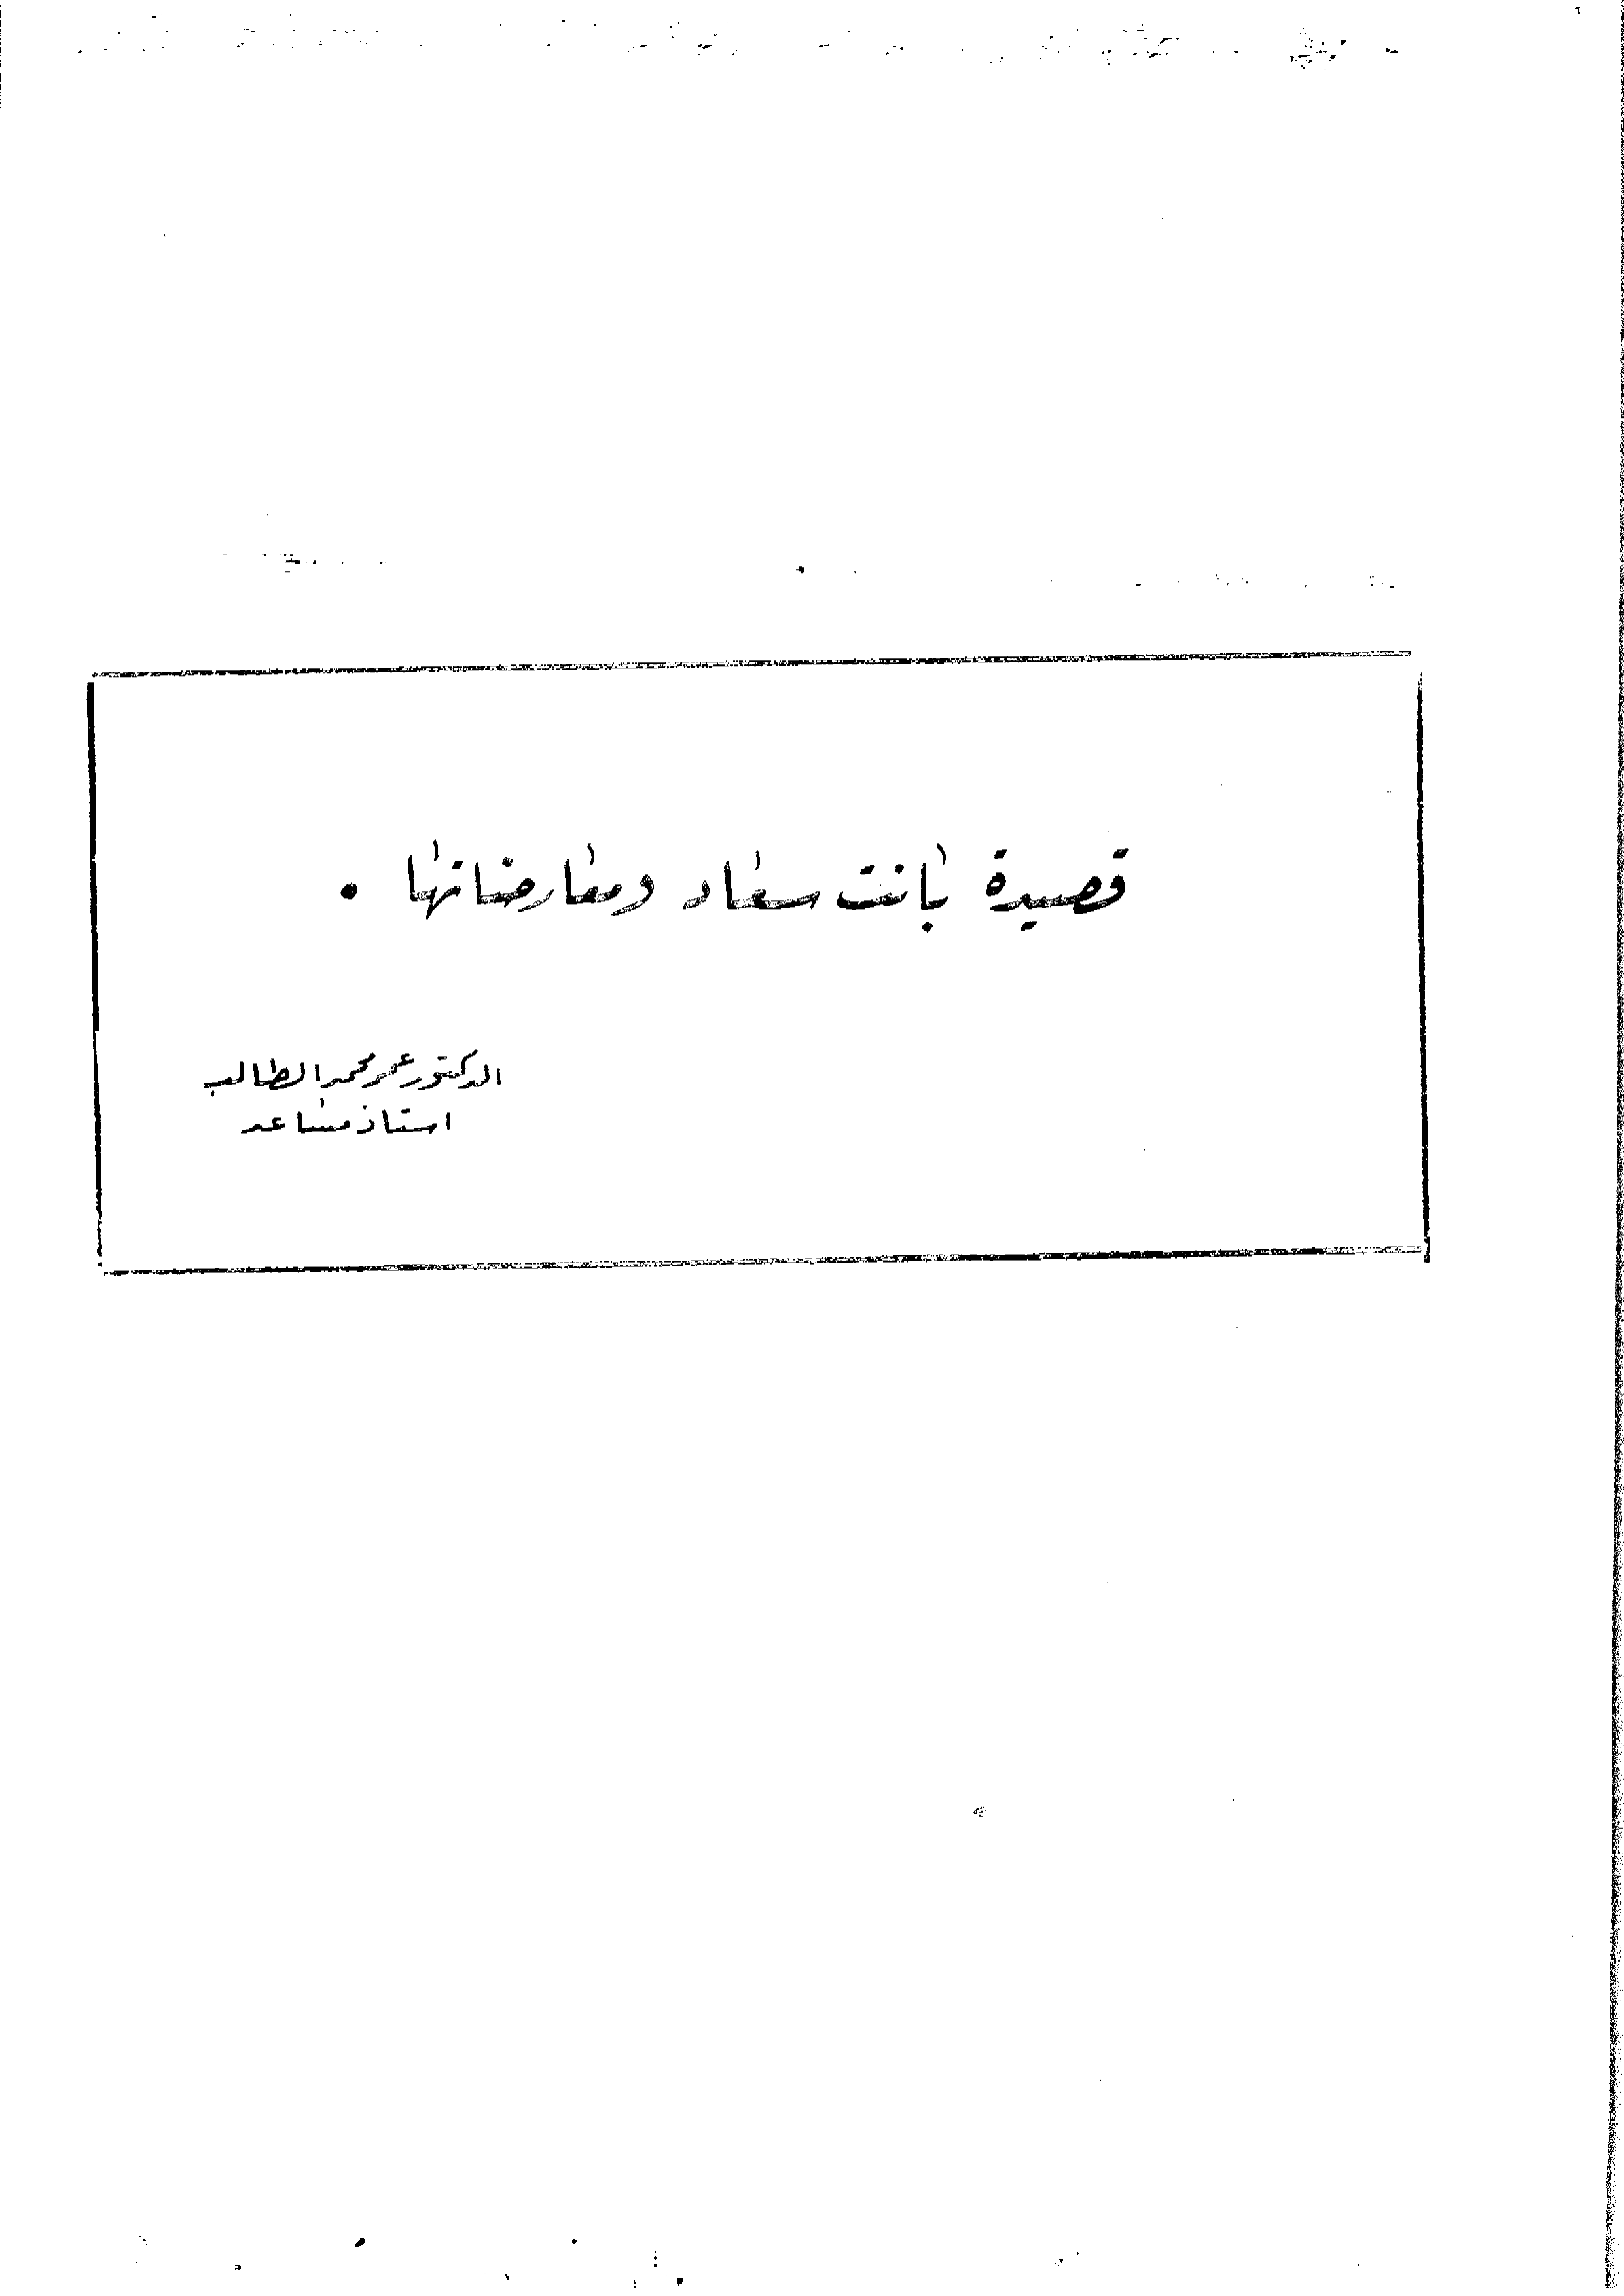 قصيدة بانت سعاد ومعارضاتها .
الدكتور عمر محمد الطالب
استاذ مساعد